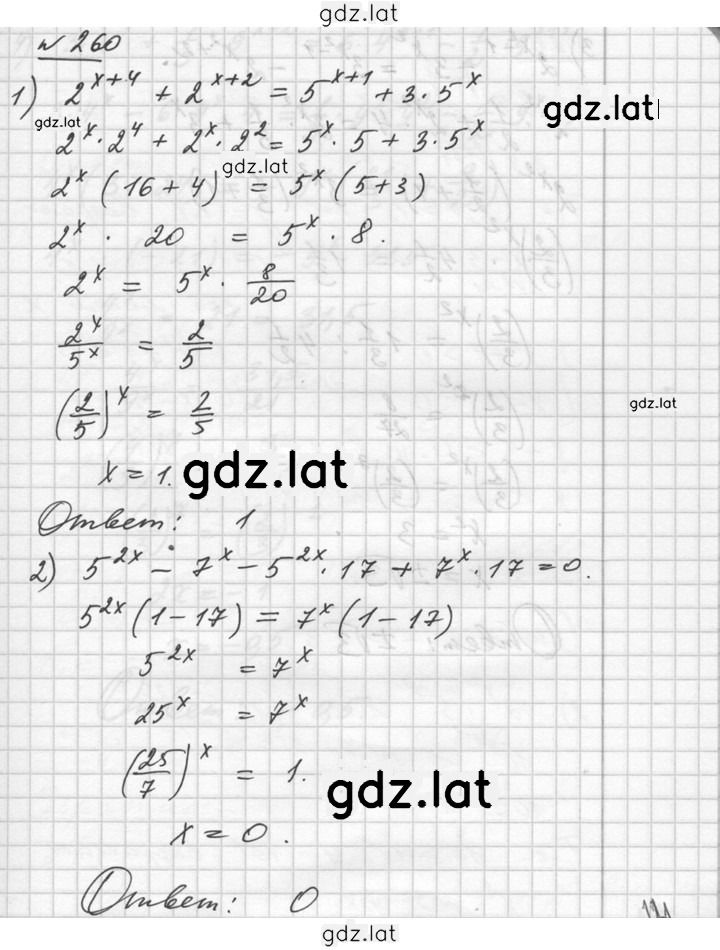 gdz.lat
№ 260
1) 2^(x+4) + 2^(x+2) = 5^(x+1) + 3·5^x
gdz.lat
gdz.lat
2^x·2^4 + 2^x·2^2 = 5^x·5 + 3·5^x
gdz.lat
2^x (16+4) = 5^x (5+3)
2^x · 20 = 5^x · 8.
2^x = 5^x · 8/20
2^x/5^x = 2/5
gdz.lat
(2/5)^x = 2/5
x = 1.
gdz.lat
Ответ: 1
2) 5^(2x) – 7^x – 5^(2x)·17 + 7^x·17 = 0.
5^(2x) (1–17) = 7^x (1–17)
5^(2x) = 7^x
25^x = 7^x
(25/7)^x = 1.
gdz.lat
x = 0.
Ответ: 0
gdz.lat